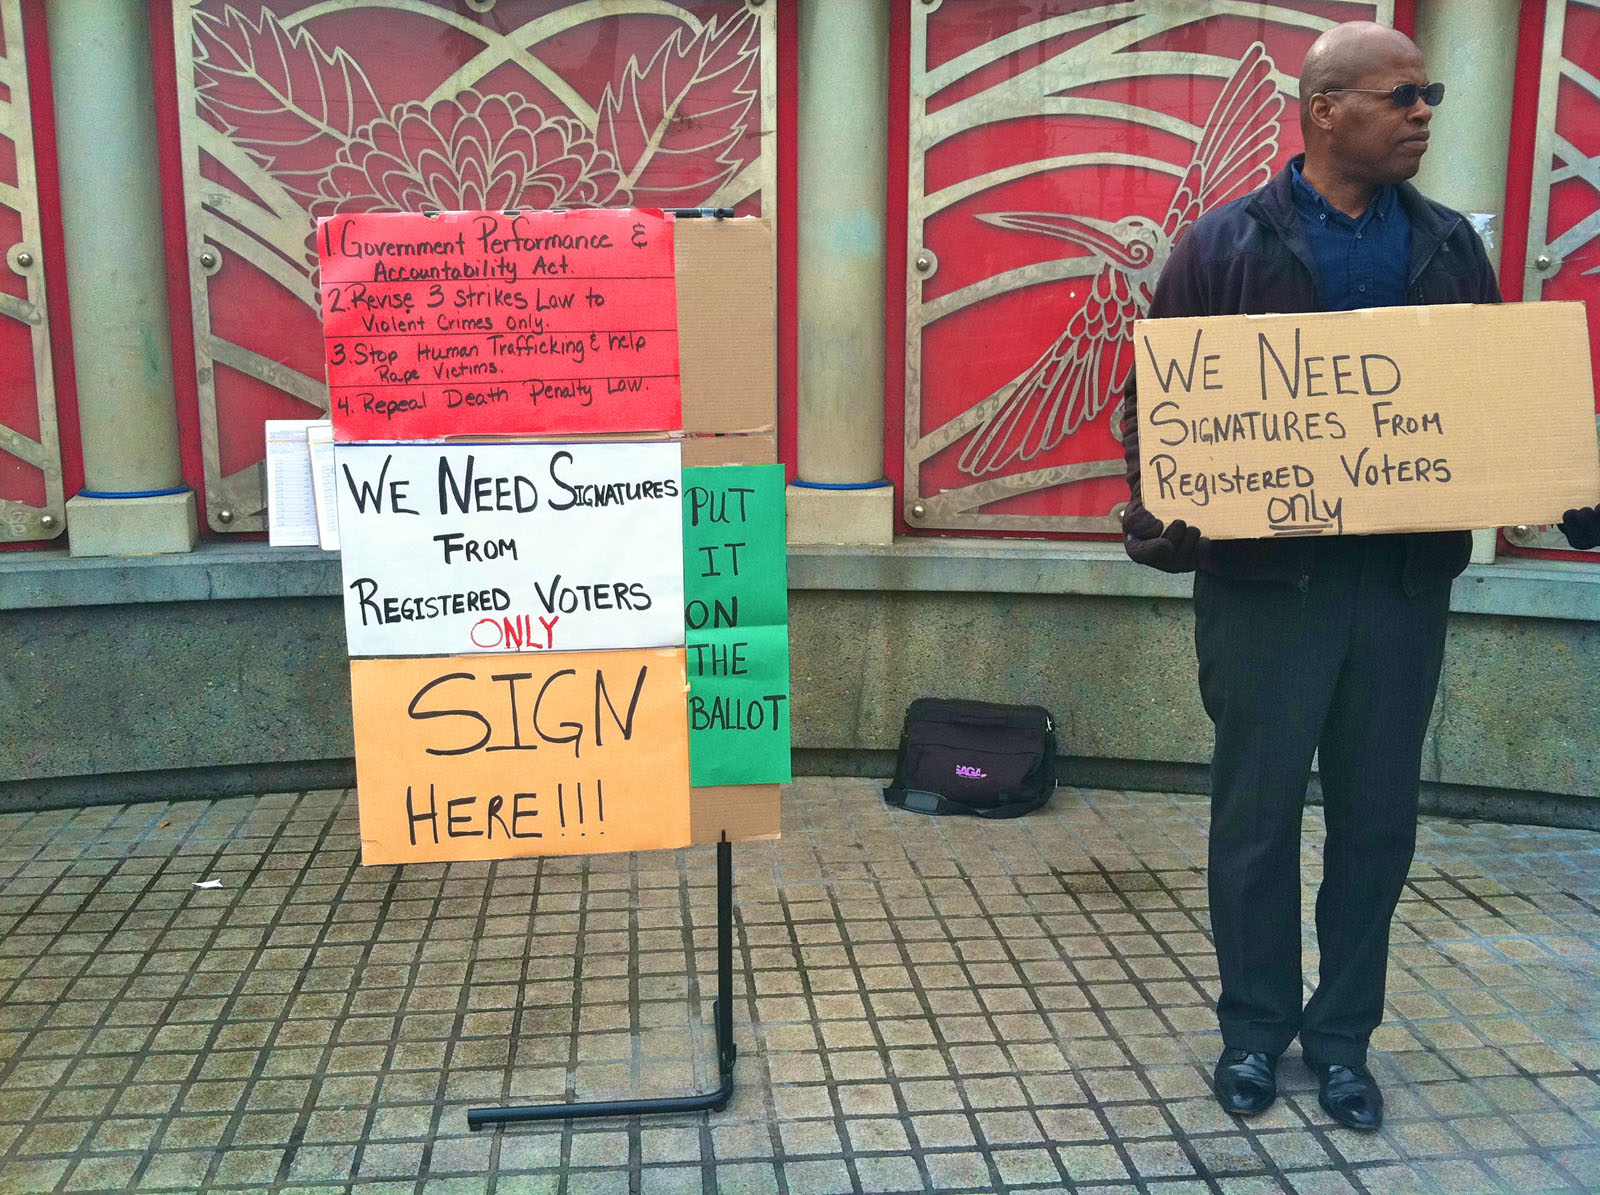 1. Government Performance &
Accountability Act.
2. Revise 3 strikes Law to
Violent Crimes Only.
3. Stop Human Trafficking & help
Rape Victims.
4. Repeal Death Penalty Law.
WE NEED SIGNATURES
FROM
REGISTERED VOTERS
ONLY
SIGN
HERE!!!
PUT
IT
ON
THE
BALLOT
WE NEED
SIGNATURES FROM
REGISTERED VOTERS
ONLY
SAGA